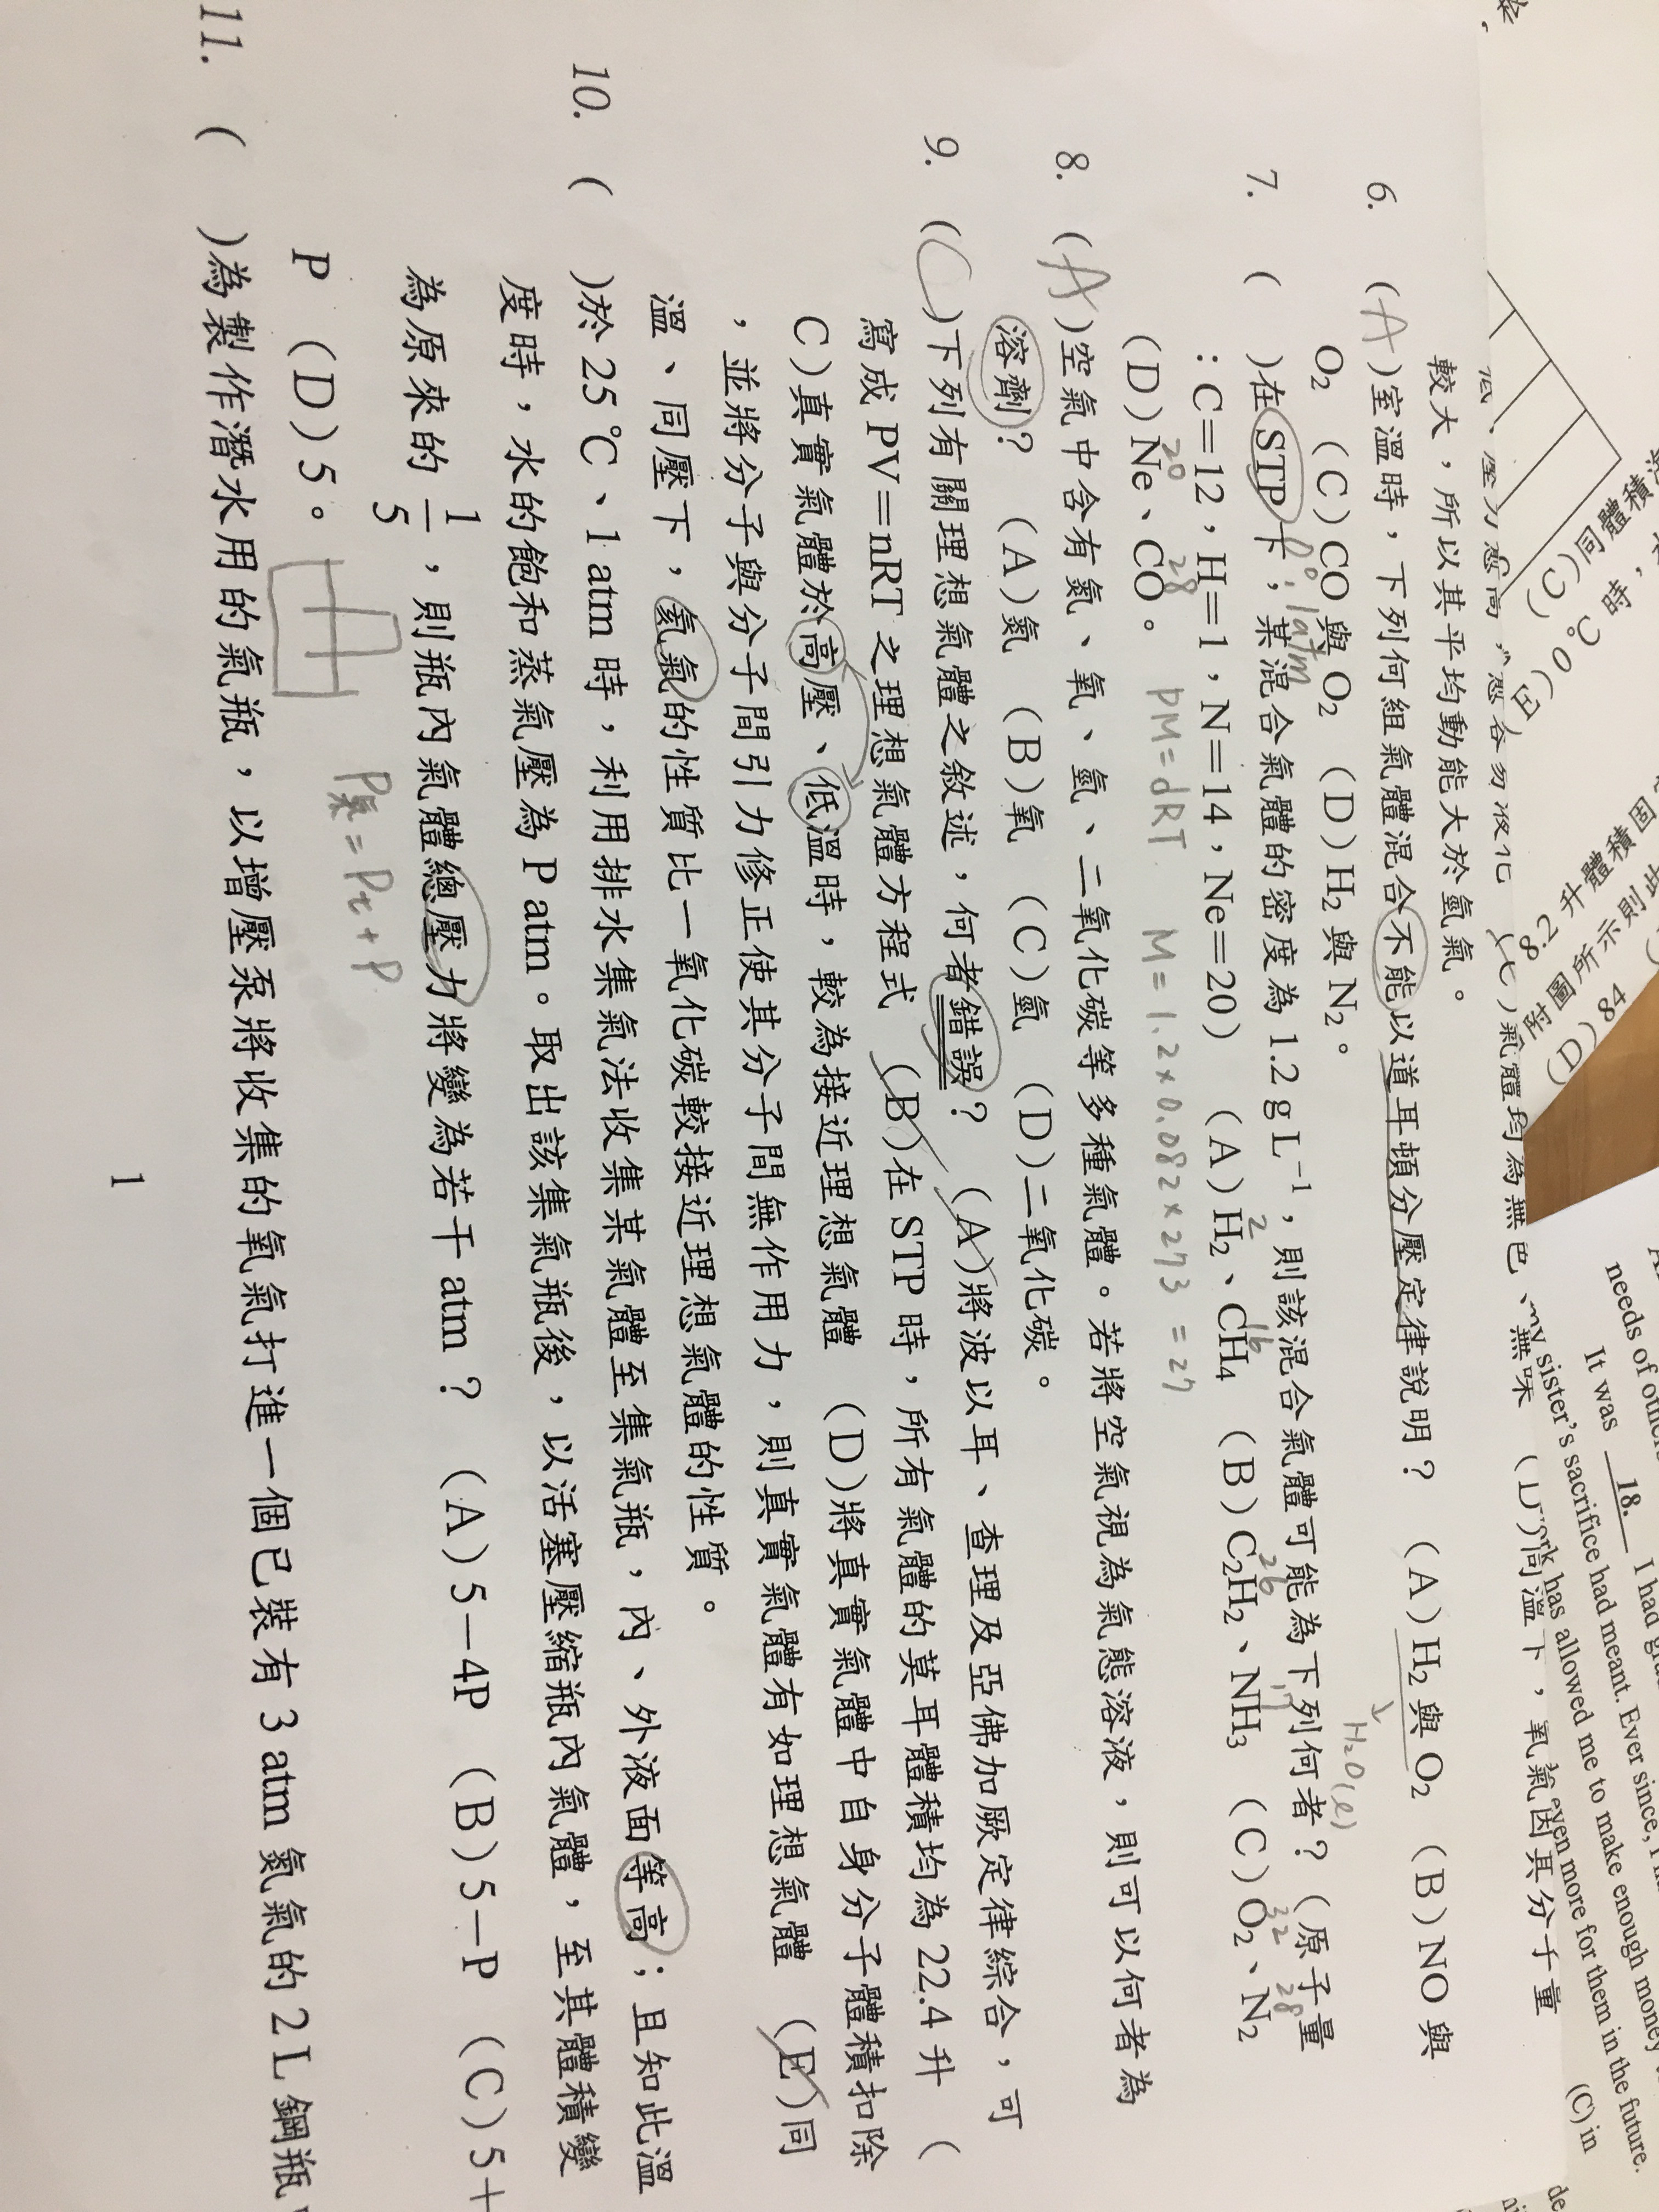 低、壓力愈高，愈容易液化 (C)氣體均為無色、無味 (D)同溫下，氧氣因其分子量
較大，所以其平均動能大於氫氣。
6. (A)室溫時，下列何組氣體混合不能以道耳頓分壓定律說明？ (A)H₂與O₂ (B)NO與
O₂ (C)CO與O₂ (D)H₂與N₂。
H₂O(l)
7. ( )在STP下，某混合氣體的密度為 1.2 g L⁻¹，則該混合氣體可能為下列何者？（原子量
0°. 1atm
：C＝12，H＝1，N＝14，Ne＝20） (A)H₂、CH₄ (B)C₂H₂、NH₃ (C)O₂、N₂
2 16 26 17 32 28
(D)Ne、CO。
20 28
PM=dRT M=1.2×0.082×273 =27
8. (A)空氣中含有氮、氧、氬、二氧化碳等多種氣體。若將空氣視為氣態溶液，則可以何者為
溶劑？ (A)氮 (B)氧 (C)氬 (D)二氧化碳。
9. (C)下列有關理想氣體之敘述，何者錯誤？ (A)將波以耳、查理及亞佛加厥定律綜合，可
寫成 PV＝nRT 之理想氣體方程式 (B)在 STP 時，所有氣體的莫耳體積均為 22.4 升 (
C)真實氣體於高壓、低溫時，較為接近理想氣體 (D)將真實氣體中自身分子體積扣除
，並將分子與分子間引力修正使其分子間無作用力，則真實氣體有如理想氣體 (E)同
溫、同壓下，氦氣的性質比一氧化碳較接近理想氣體的性質。
10. ( )於 25 ℃、1 atm 時，利用排水集氣法收集某氣體至集氣瓶，內、外液面等高；且知此溫
度時，水的飽和蒸氣壓為 P atm。取出該集氣瓶後，以活塞壓縮瓶內氣體，至其體積變
為原來的 1/5，則瓶內氣體總壓力將變為若干 atm？ (A)5－4P (B)5－P (C)5＋
P (D)5。
P氣=Pt+P
11. ( )為製作潛水用的氣瓶，以增壓泵將收集的氧氣打進一個已裝有 3 atm 氮氣的 2 L 鋼瓶
1
同體積
0℃時，
8.2 升體積固
附圖所示則此
(D)84
needs of others
It was 18. I had
my sister's sacrifice had meant. Ever since, I
has allowed me to make enough money
even more for them in the future.
(C) in